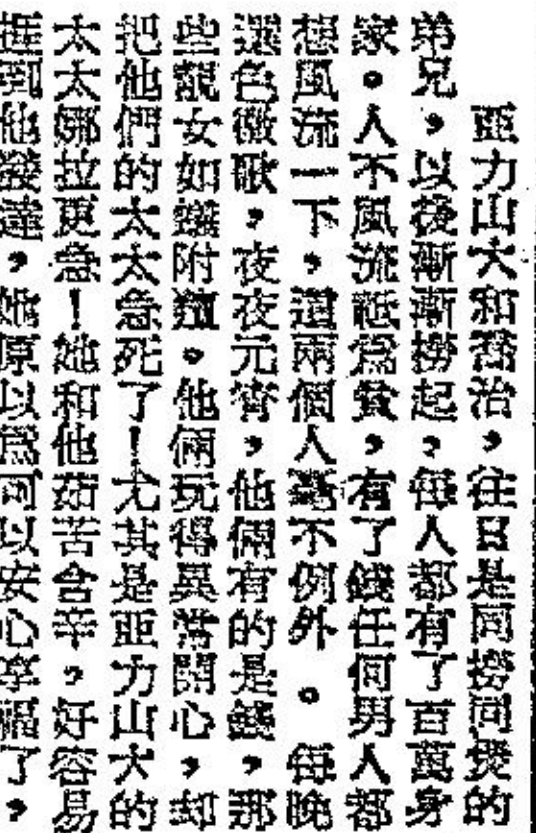 亞力山大和喬治，往日是同撈同煲的
弟兄，以後漸漸撈起，每人都有了百萬身
家。人不風流祗爲貧，有了錢任何男人都
想風流一下，這兩個人毫不例外。每晚
選色徵歌，夜夜元宵，他倆有的是錢，那
些靚女如蟻附羶。他倆玩得異常開心，却
把他們的太太急死了！尤其是亞力山大的
太太娜拉更急！她和他茹苦含辛，好容易
捱到他發達，她原以爲可以安心享福了，